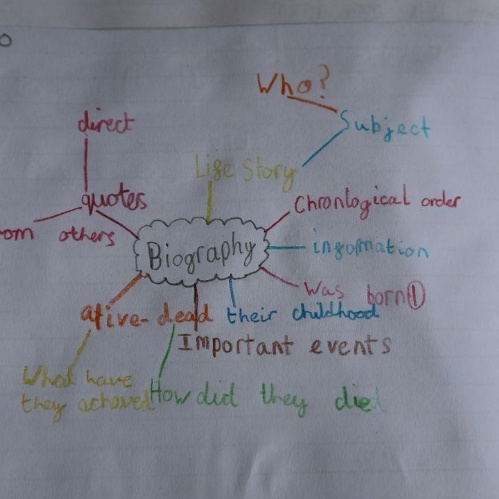 Who?
direct
Subject
Life Story
quotes
Chronlogical order
om others
Biography
information
was born①
alive-dead
their childhood
Important events
What have
they achaved
How did they died